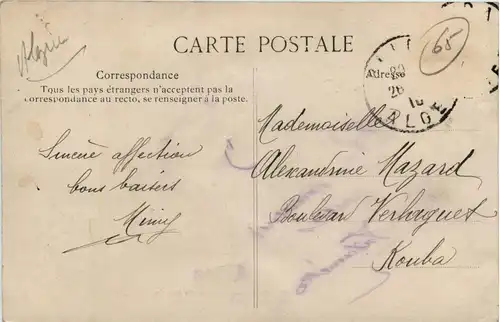 Algérie
65
CARTE POSTALE
Correspondance
Tous les pays étrangers n'acceptent pas la
correspondance au recto, se renseigner à la poste.
Adresse
ALG
Sincère affection
bons baisers
Mimy
Mademoiselle
Alexandrine Mazard
Boulevard Verlaguet
Kouba